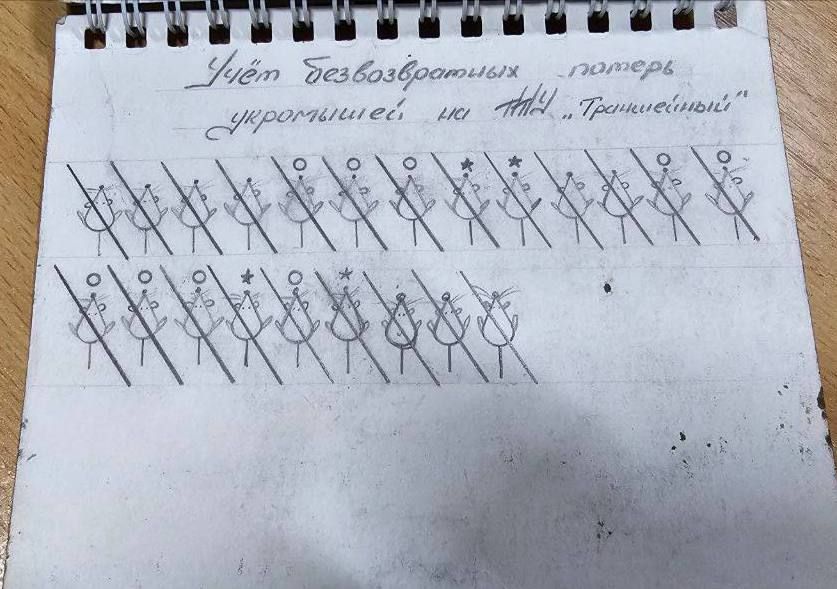 Учёт безвозвратных потерь
укромышей на ТПУ „Траншейный"